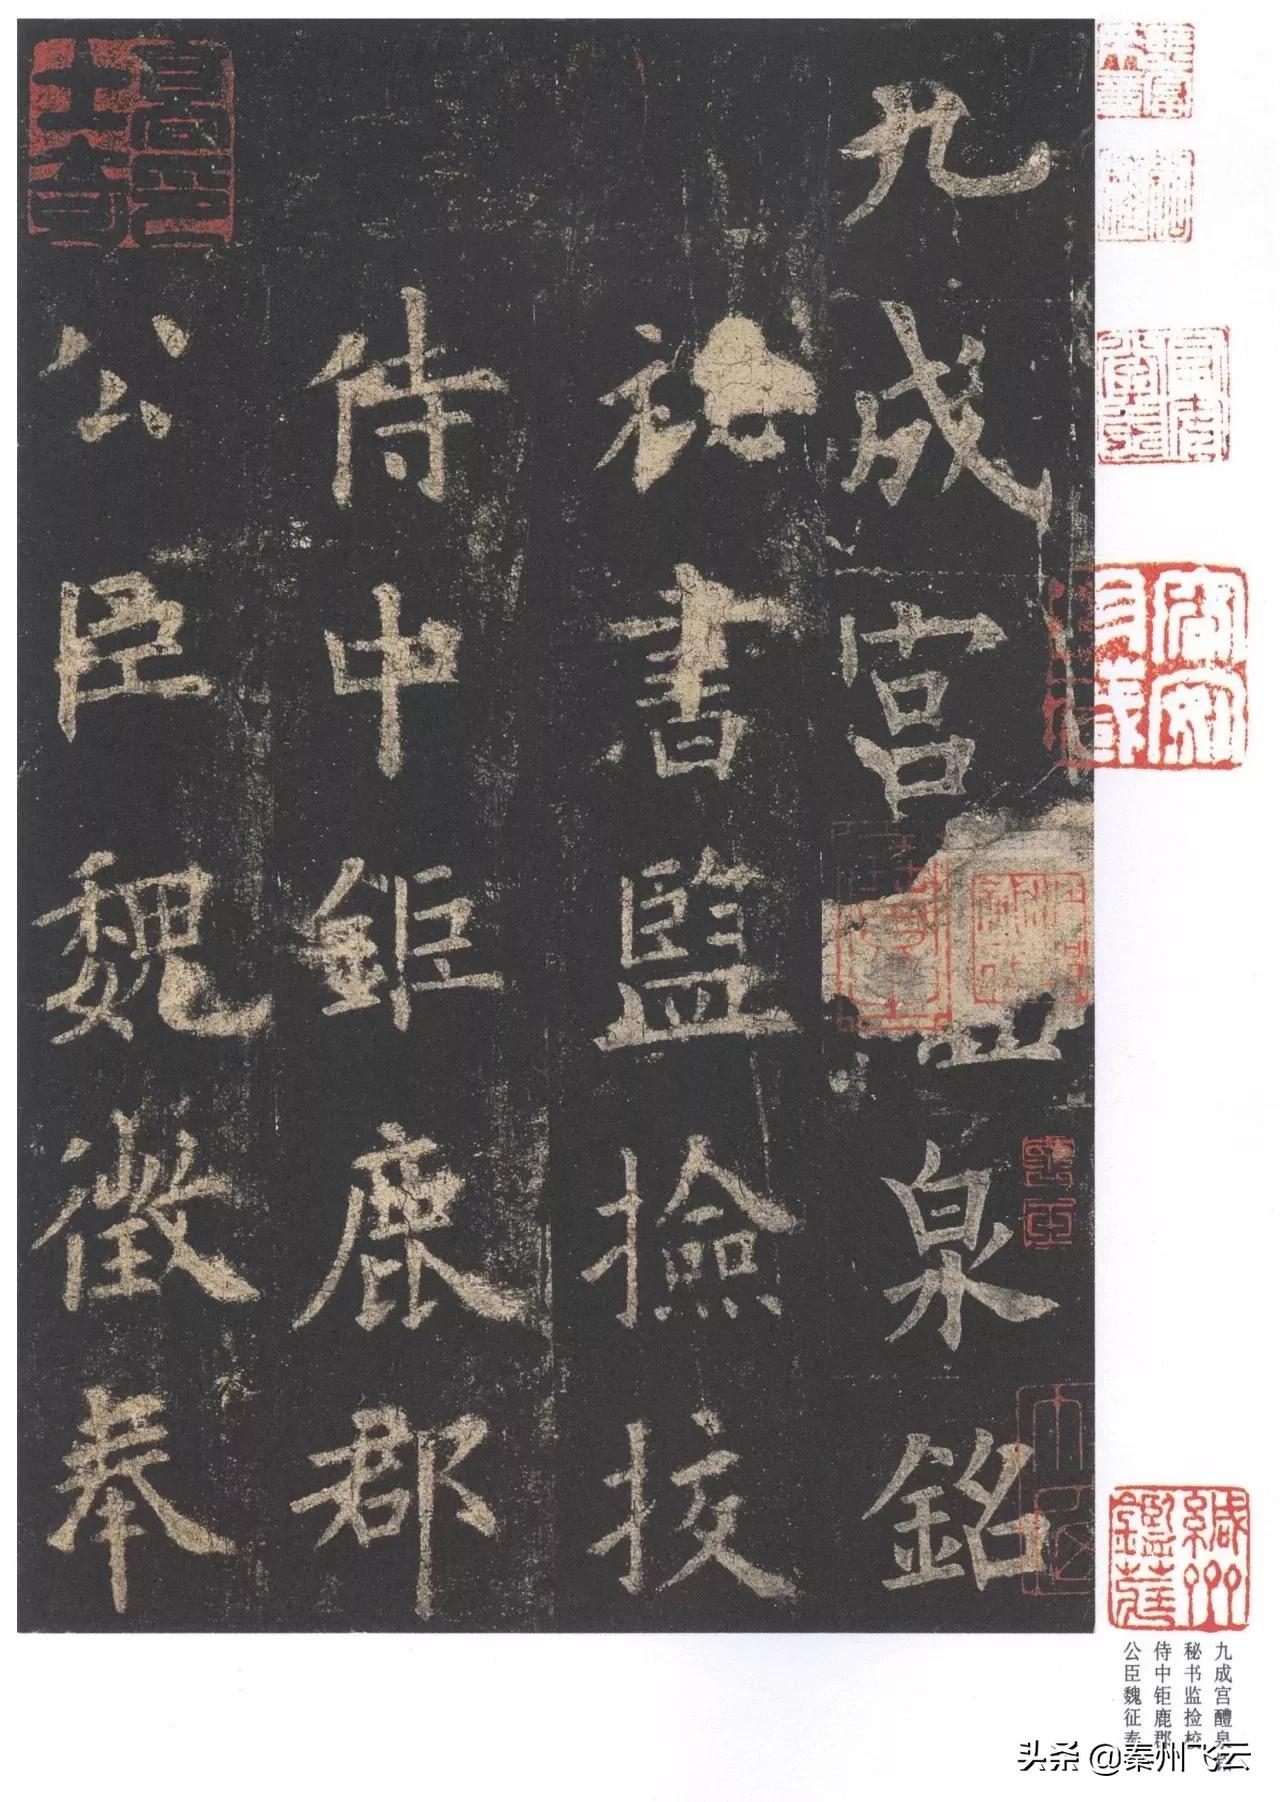 九成宮醴泉銘
祕書監撿挍
侍中鉅鹿郡
公臣魏徵奉
九成宫醴泉
秘书监捡校
侍中钜鹿郡
公臣魏征奉
头条 @秦州飞云